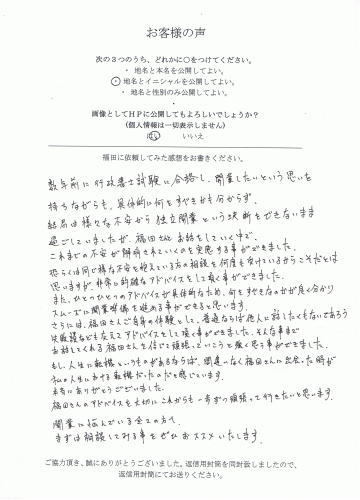 お客様の声
次の3つのうち、どれかに○をつけてください。
・ 地名と本名を公開してよい。
・ 地名とイニシャルを公開してよい。
・ 地名と性別のみ公開してよい。
画像としてHPに公開してもよろしいでしょうか？
（個人情報は一切表示しません）
はい　いいえ
福田に依頼してみた感想をお書きください。
数年前に行政書士試験に合格し、開業したいという思いを
持ちながらも、具体的に何をすべきかも分からず、
結局は様々な不安から独立開業という決断をできないまま
過ごしていましたが、福田さんとお話をしていく中で、
これまでの不安が解消されていくのを実感する事ができました。
恐らくは同じ様な不安を抱えている方の相談を何度も受けているからこそだとは
思いますが、非常に的確なアドバイスをして頂く事ができました。
また、ひとつひとつのアドバイスが具体的なため、何をすべきなのかが良く分かり
スムーズに開業準備を進める事ができると思います。
さらには、福田さんご自身の体験として、普通ならば他人に話したくもないであろう
失敗談なども交えてアドバイスをして頂く事ができました。そんな事まで
お話してくれる福田さんを信じて頑張っていこうと強く思う事ができました。
もし、人生に転機というものがあるならば、間違いなく福田さんに出会った時が
私の人生における転機だったのだと感じています。
本当にありがとうございました。
福田さんのアドバイスを大切にこれからも一歩ずつ頑張って行きたいと思います。
開業に悩んでいる全ての方へ、
まずは相談してみる事をぜひおススメいたします。
ご協力頂き、誠にありがとうございました。返信用封筒を同封致しましたので、
返信用封筒にてお送りください。